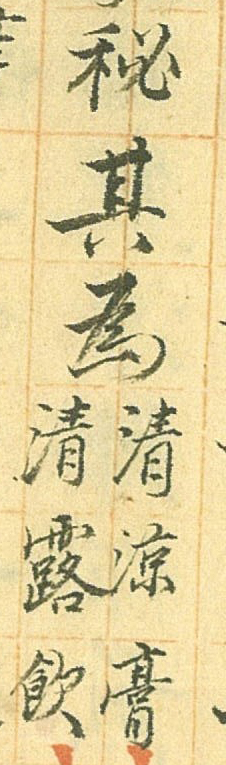 秘其為
清涼膏
清露飲